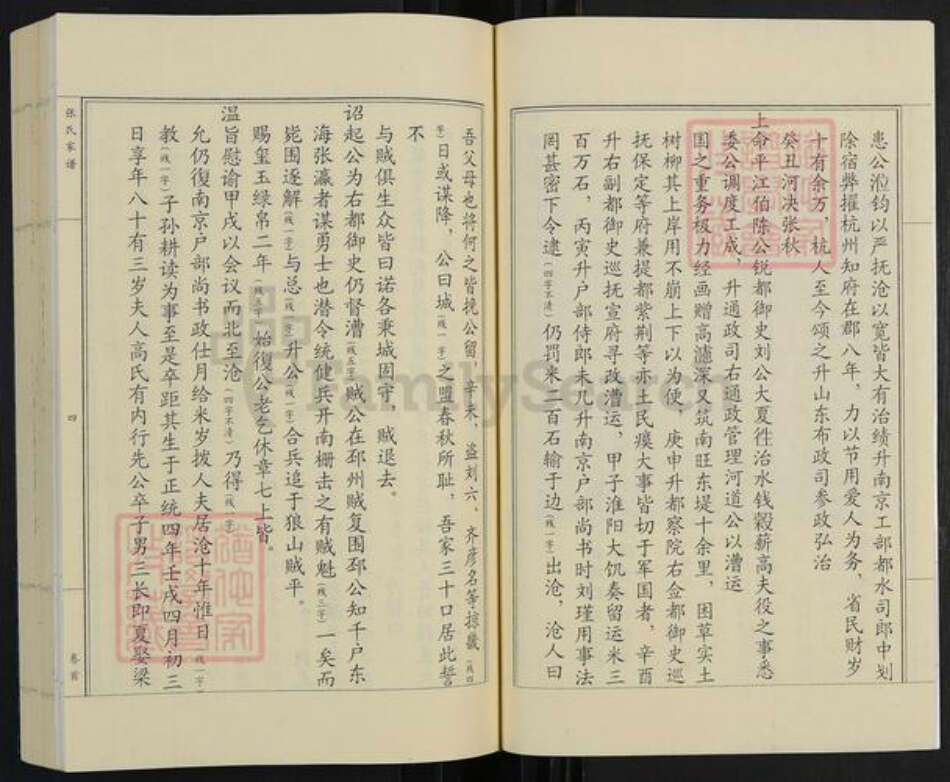 患公涖钧以严抚沧以宽皆大有治绩升南京工部都水司郎中划
除宿弊擢杭州知府在郡八年，力以节用爱人为务，省民财岁
十有余万，杭人至今颂之升山东布政司参政弘治
癸丑河决张秋
上命平江伯陈公锐都御史刘公大夏往治水钱穀薪高夫役之事悉
委公调度工成，升通政司右通政管理河道公以漕运
国之重务极力经画赠高濾深又筑南旺东堤十余里，困草实土
树柳其上岸用不崩上下以为便，庚申升都察院右佥都御史巡
抚保定等府兼提都紫荆等亦土民瘼大事皆切于军国者，辛酉
升右副都御史巡抚宣府寻改漕运，甲子淮阳大饥奏留运米三
百万石，丙寅升户部侍郎未几升南京户部尚书时刘瑾用事法
罔甚密下令逮（四字不清）仍罚米二百石输于边（残一字）出沧，沧人曰
吾父母也将何之皆挽公留，辛未，盗刘六、齐彦名等掠畿（残四
字）日或谋降，公曰城（残一字）之盟春秋所耻，吾家三十口居此誓
不
与贼俱生众皆曰诺各乘城固守，贼退去。
诏起公为右都御史仍督漕（残五字）贼公在邳州贼复围邳公知千户东
海张瀛者谋勇士也潜令统健兵开南栅击之有贼魁（残三字）一矣而
毙围逐解（残一字）与总（残一字）升公（残一字）合兵追于狼山贼平。
赐玺玉绿帛二年（残五字）始復公老乞休章七上皆。
温旨慰谕甲戌以会议而北至沧（四字不清）乃得（残一字）
允仍復南京户部尚书政仕月给米岁拨人夫居沧十年惟日（残一字）
教（残一字）子孙耕读为事至是卒距其生于正统四年壬戌四月初三
日享年八十有三岁夫人高氏有内行先公卒子男三长即夏娶梁
张氏家谱
四
卷首
FamilySearch